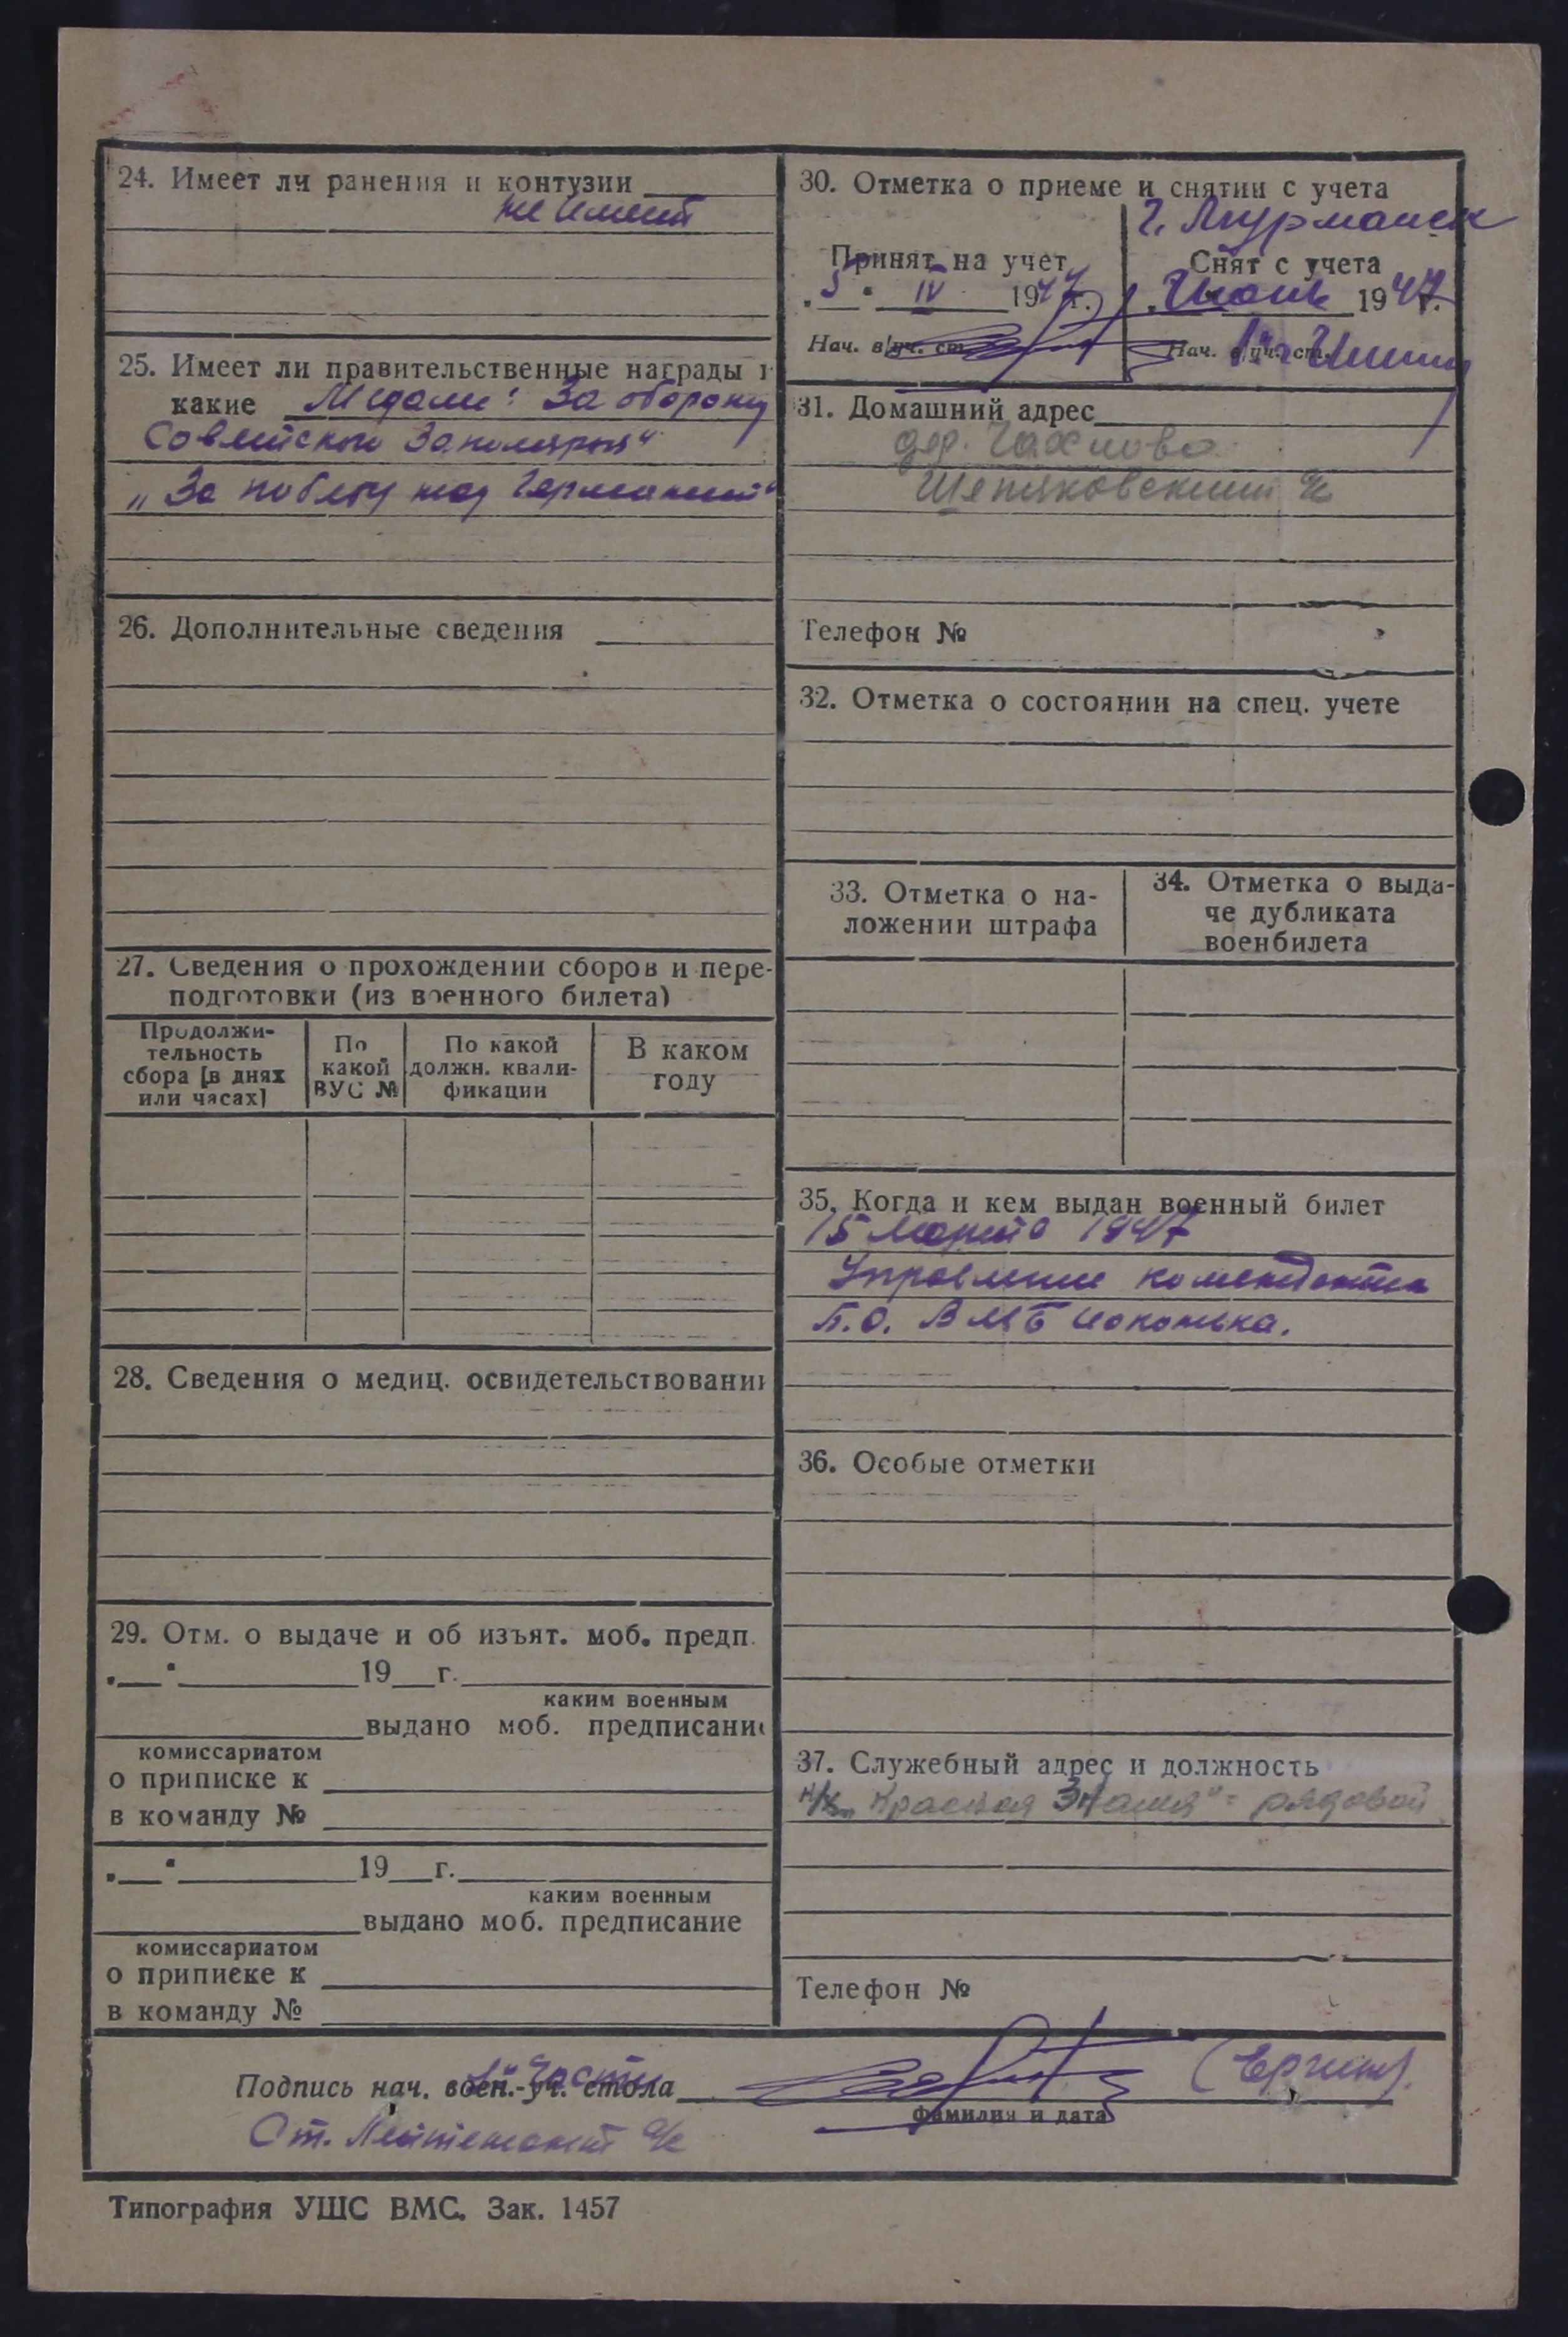 24. Имеет ли ранения и контузии
не имеет
25. Имеет ли правительственные награды и
какие Медали: За оборону
Советского Заполярья"
"За победу над Германией"
26. Дополнительные сведения
27. Сведения о прохождении сборов и пере-
подготовки (из военного билета)
Продолжи-
тельность
сбора [в днях
или часах]
По
какой
ВУС №
По какой
должн. квали-
фикации
В каком
году
28. Сведения о медиц. освидетельствовании
29. Отм. о выдаче и об изъят. моб. предп.
" " 19 г.
каким военным
выдано моб. предписание
комиссариатом
о приписке к
в команду №
" " 19 г.
каким военным
выдано моб. предписание
комиссариатом
о приписке к
в команду №
30. Отметка о приеме и снятии с учета
г. Мурманск
Принят на учет
"5" IV 1947 г.
Нач. в/уч. ст.
Снят с учета
1947 г.
Нач. в/уч. ст.
31. Домашний адрес
дер.
с/с
Телефон №
32. Отметка о состоянии на спец. учете
33. Отметка о на-
ложении штрафа
34. Отметка о выда-
че дубликата
военбилета
35. Когда и кем выдан военный билет
15 марта 1947
Управление коменданта
Б.О. ВМБ Иоконька.
36. Особые отметки
37. Служебный адрес и должность
к/х "Красная Знамя" - рядовой
Телефон №
Подпись нач. воен.-уч. стола
части
фамилия и дата
Ст. Лейтенант а/с
Типография УШС ВМС. Зак. 1457